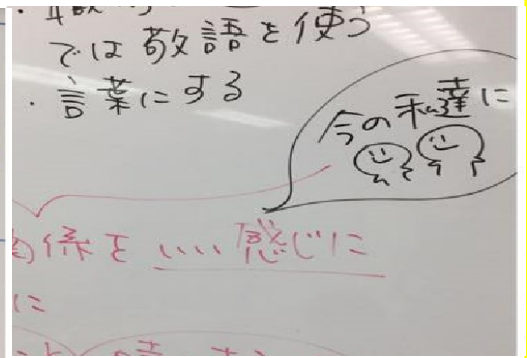 では敬語を使う
・言葉にする
今の私達に
係をいい感じに
に